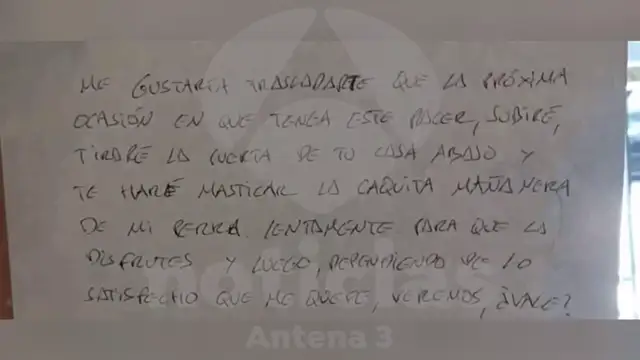 ME GUSTARÍA TRASLADARTE QUE LA PRÓXIMA
OCASIÓN EN QUE TENGA ESTE PLACER, SUBIRÉ,
TIRARÉ LA PUERTA DE TU CASA ABAJO Y
TE HARÉ MASTICAR LA CAQUITA MAÑANERA
DE MI PERRA LENTAMENTE PARA QUE LA
DISFRUTES Y LUEGO, DEPENDIENDO DE LO
SATISFECHO QUE ME QUEDE, VEREMOS, ¿VALE?
noticias
Antena 3